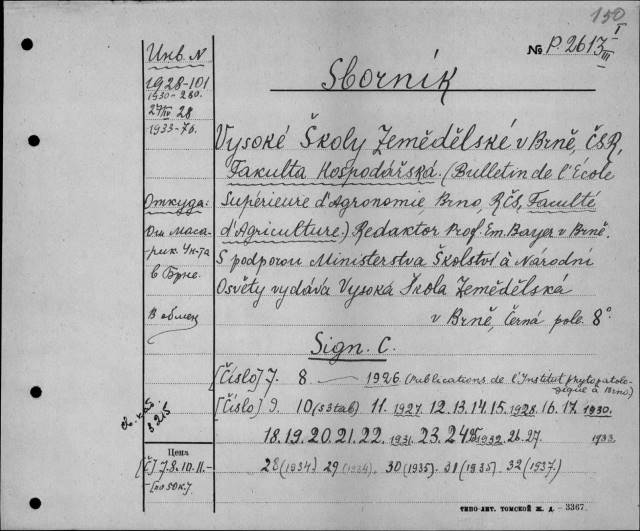 150
№ P. 2613 I/III
Инв. N
1928-101
1930-280.
27/IV 28
1933-76.
Откуда:
От Маса-
рик. Ун-та
в Брне.
В обмен
Цена
[Č] 7.8.10.11.-
[по 50к.]
Sborník
Vysoké Školy Zemědělské v Brně, ČSR,
Fakulta Hospodářská. (Bulletin de l'Ecole
Supérieure d'Agronomie, Brno, RČS, Faculté
d'Agriculture.) Redaktor Prof. Em. Bayer v Brně.
S podporou Ministerstva Školství à Národní
Osvěty vydáva Vysoká Škola Zemědělská
v Brně, Černá pole. 8°.
Sign. C.
[Číslo] 7. 8. — 1926 (Publications de l'Institut phytopatolo-
gique à Brno)
[Číslo] 9. 10 (s 3 tab) 11. 1927. 12. 13. 14. 15. 1928. 16. 17. 1930.
18. 19. 20. 21. 22. 1931. 23. 24. 25 1932. 26. 27. 1933
28 (1934) 29 (1934). 30 (1935). 31 (1935). 32 (1937.)
ТИПО-ЛИТ. ТОМСКОЙ Ж. Д. - 3367.